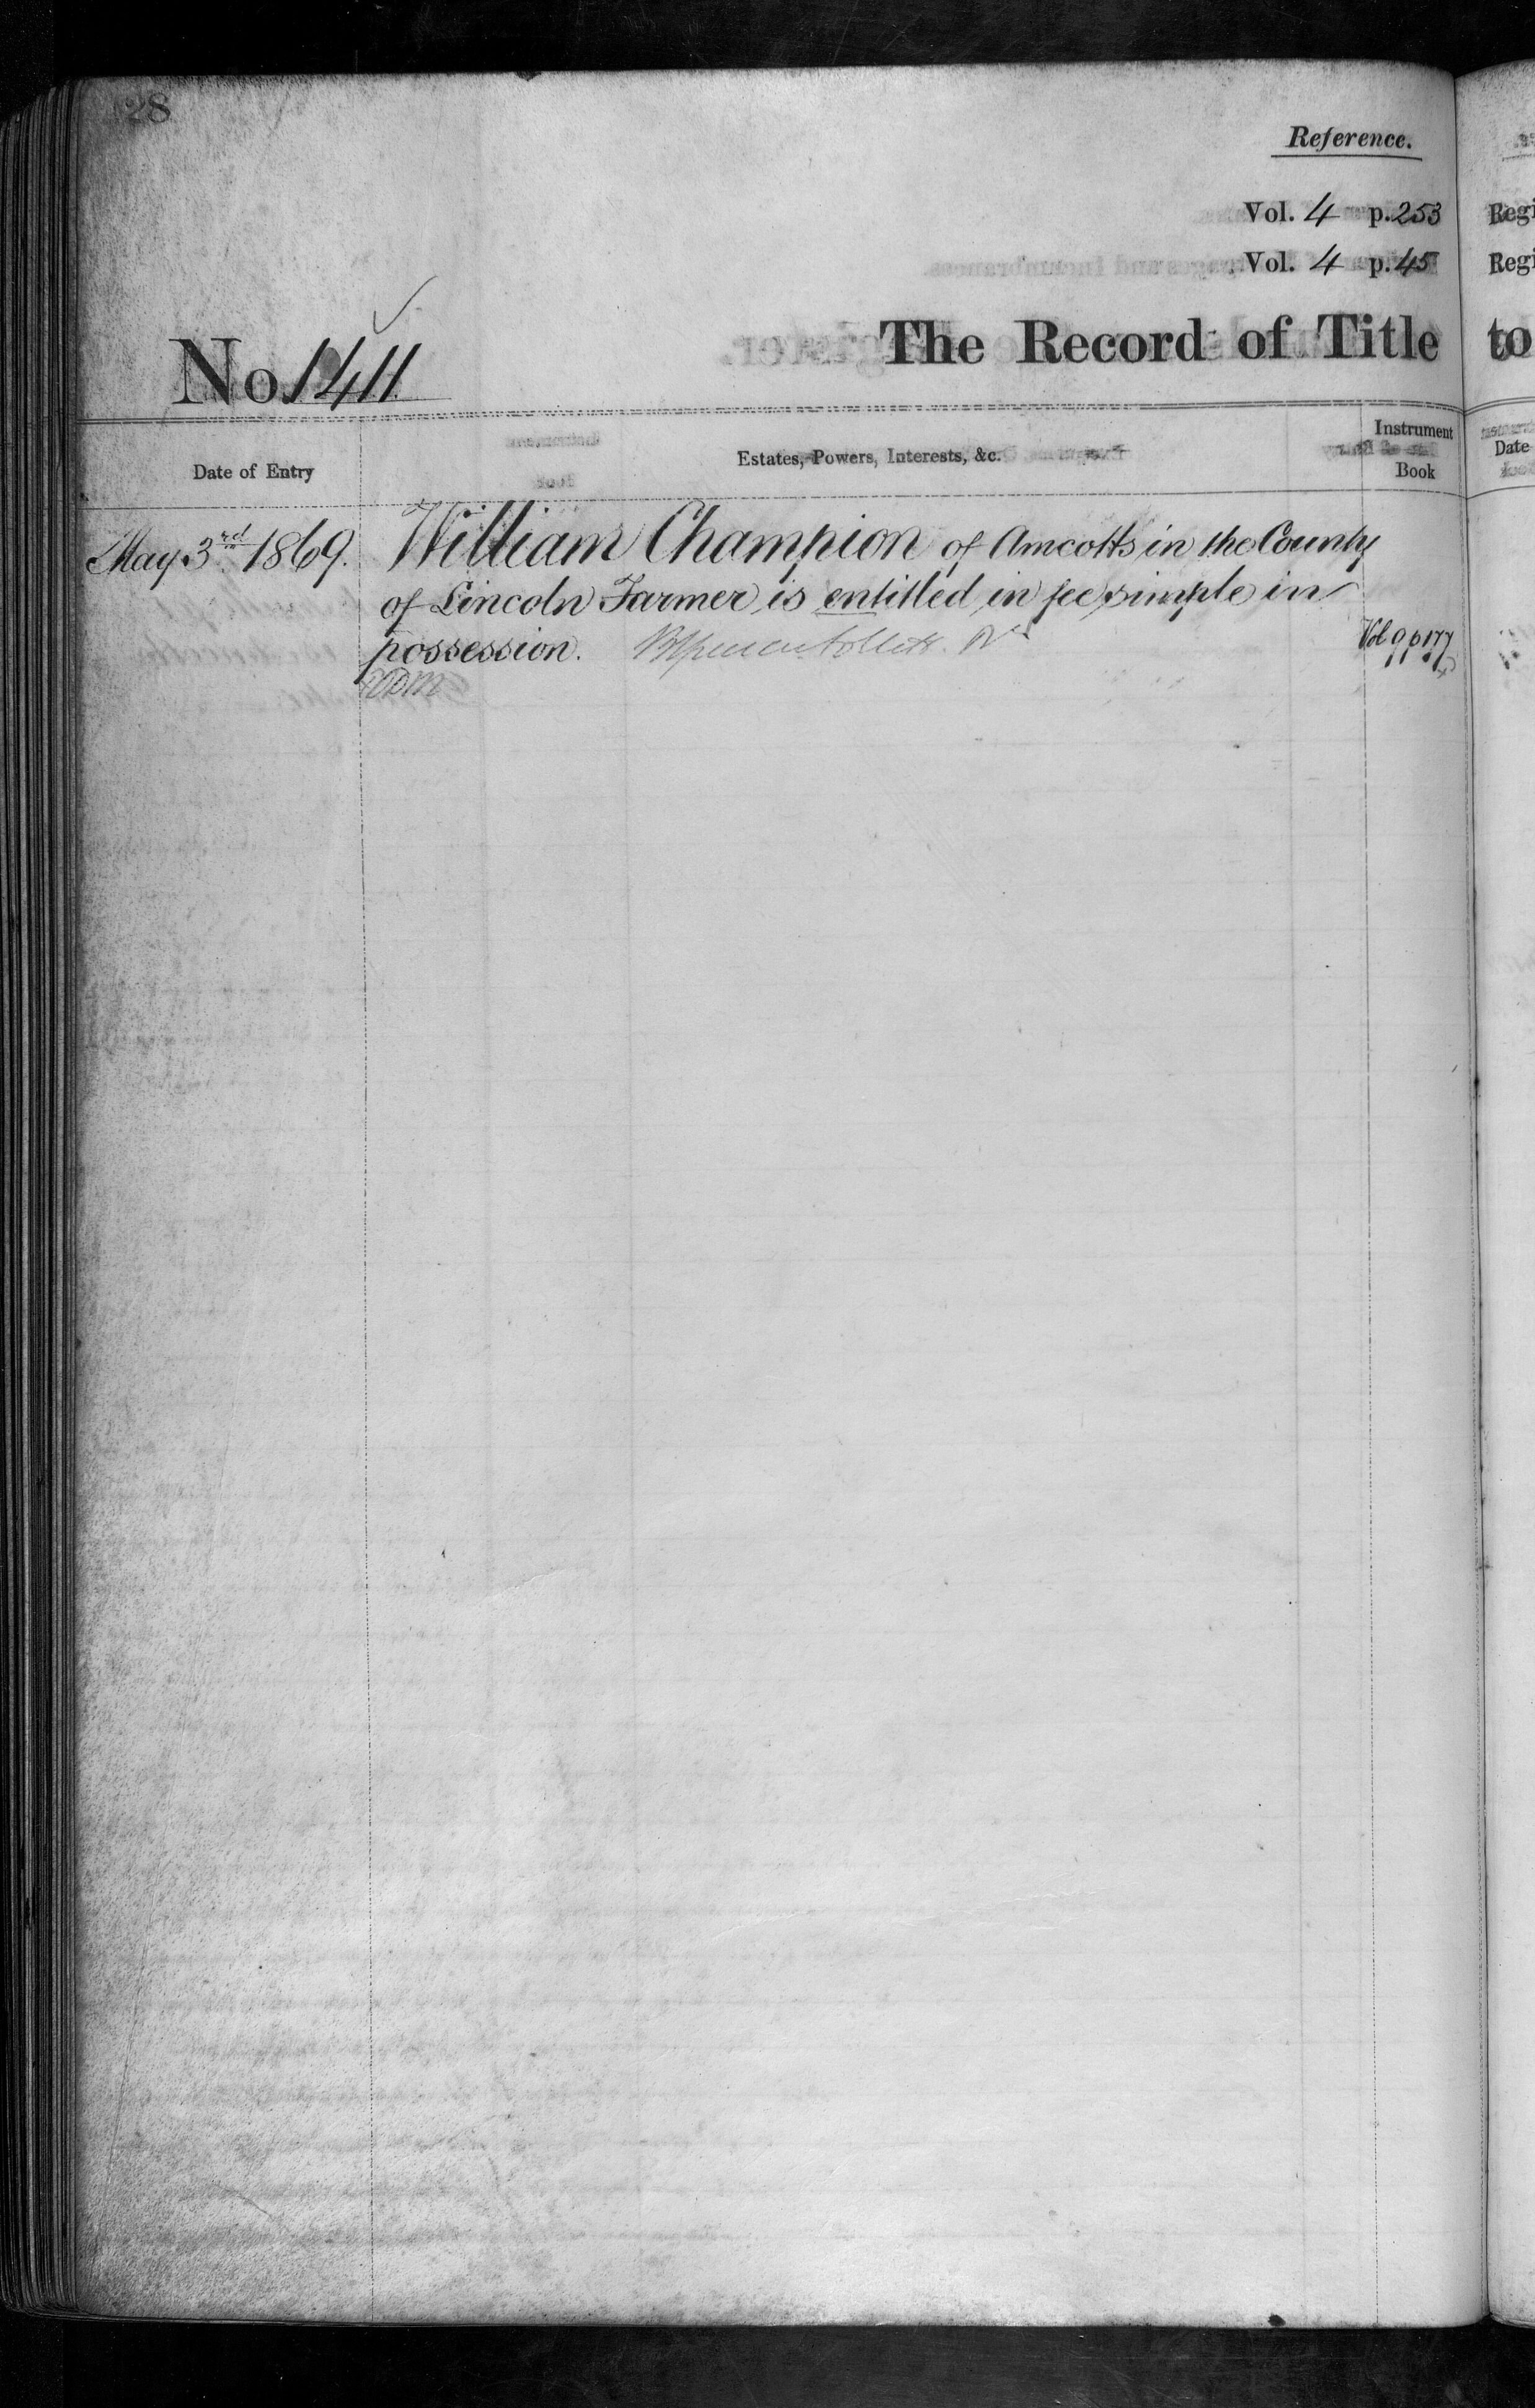 28
Reference.
Vol. 4 p. 253 Regi
Vol. 4 p. 45 Regi
No 1411. The Record of Title to
Date of Entry Estates, Powers, Interests, &c. Instrument Book Date
May 3rd 1869. William Champion of Amcotts in the County
of Lincoln Farmer is entitled in fee simple in
possession. Vol 9 p 177